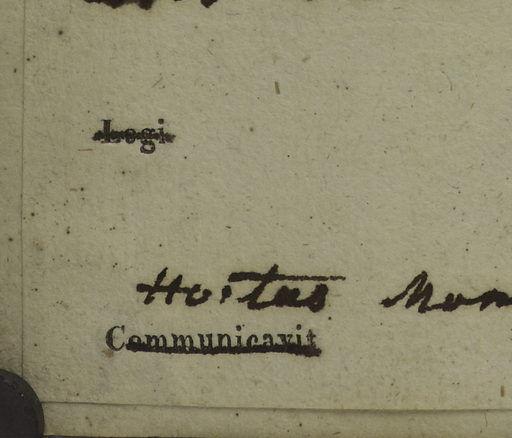 Legi
Hortus Mon
Communicavit